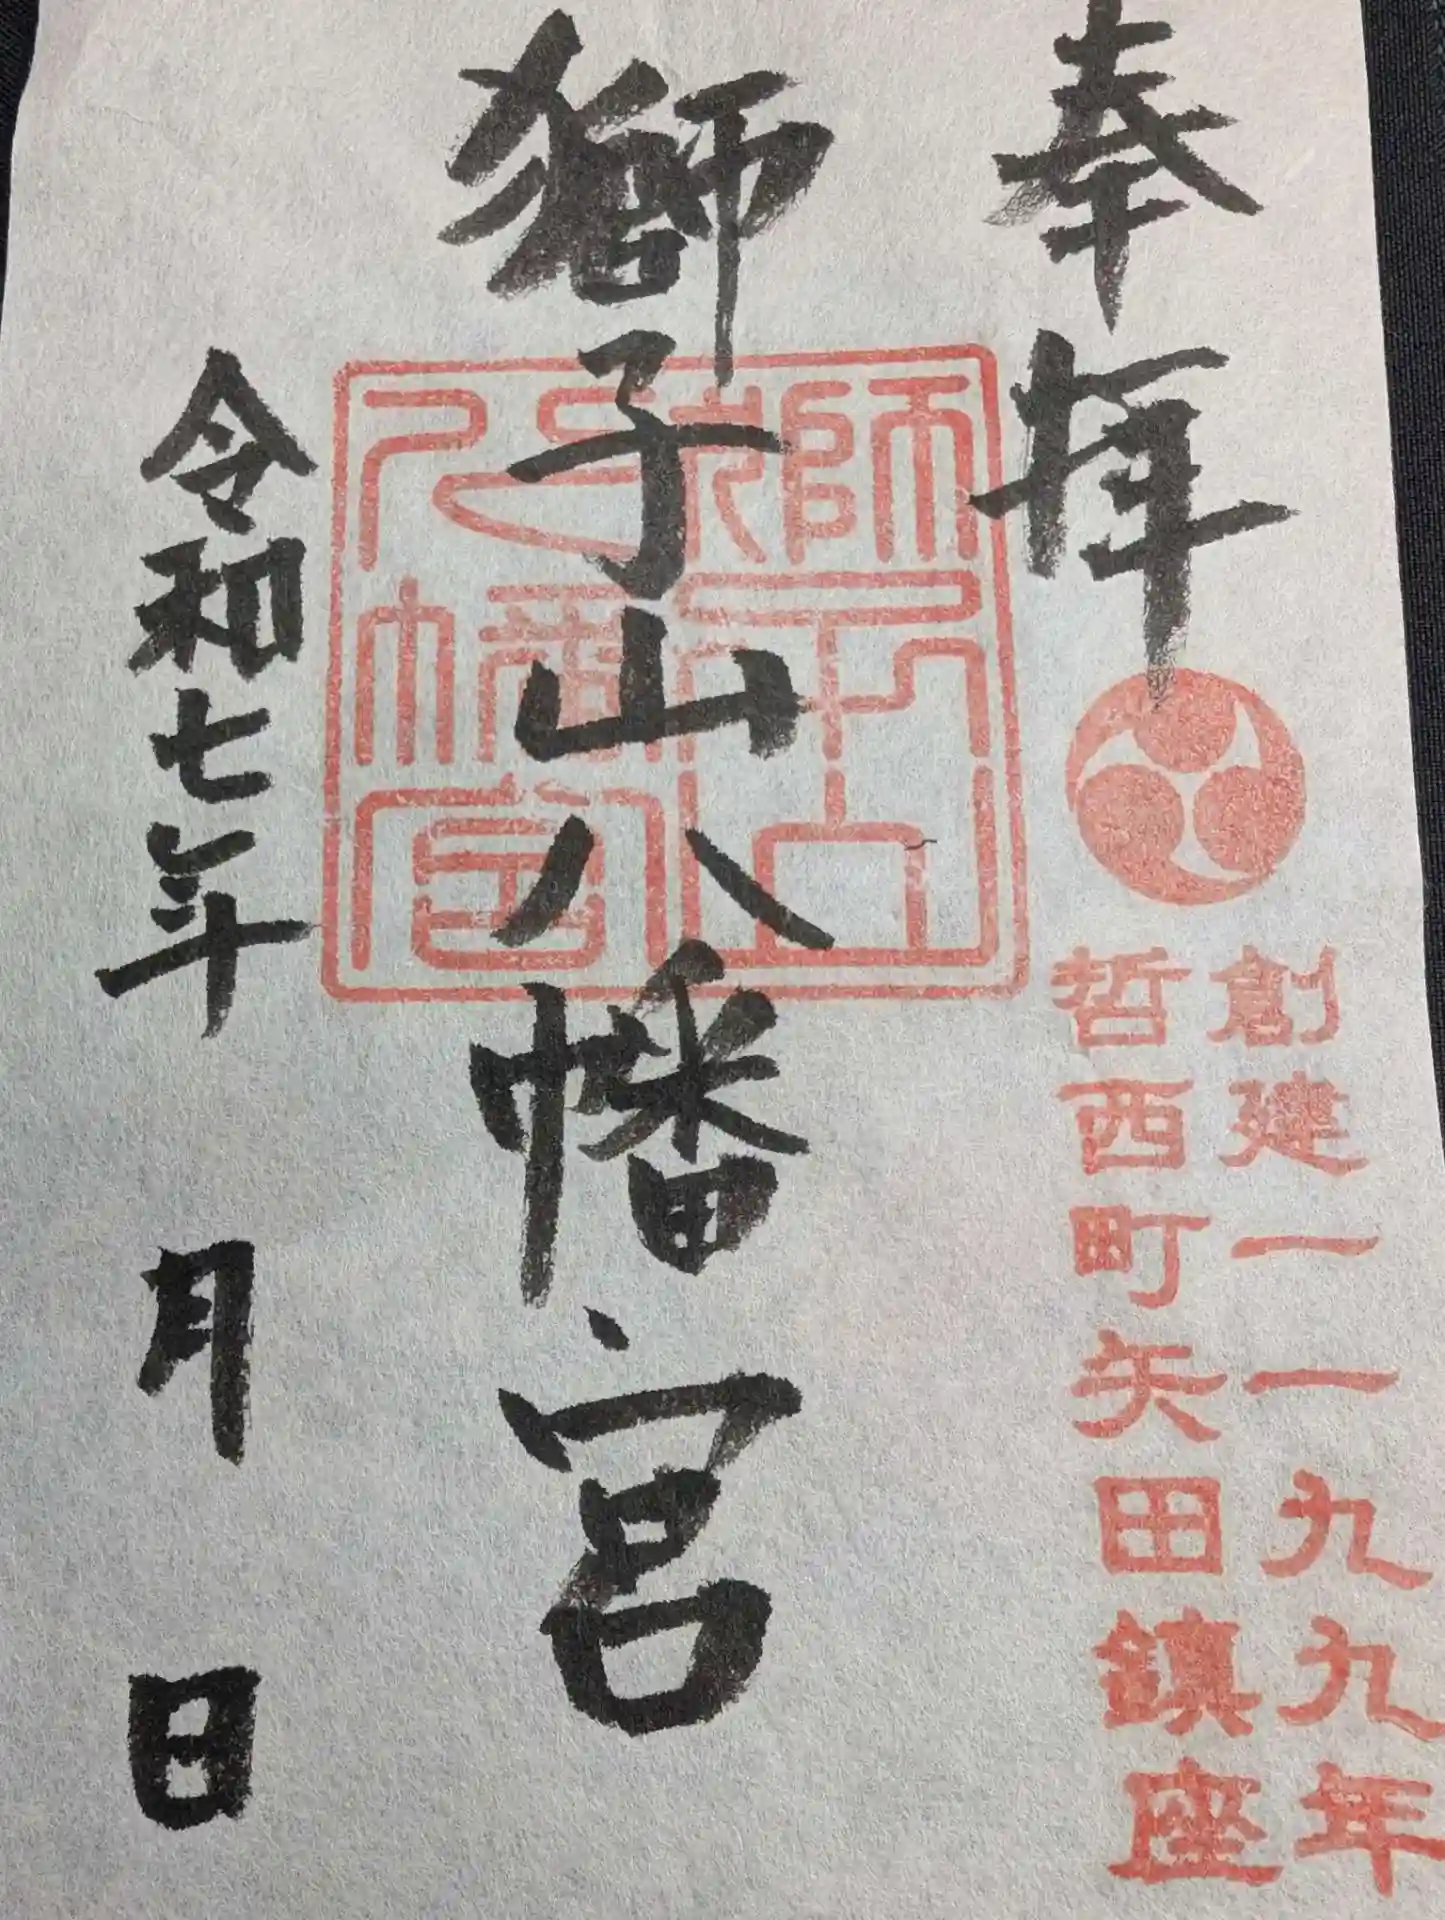 奉拝
創建一一九九年
哲西町矢田鎮座
獅子山八幡宮
師子山
八幡宮
令和七年 月 日